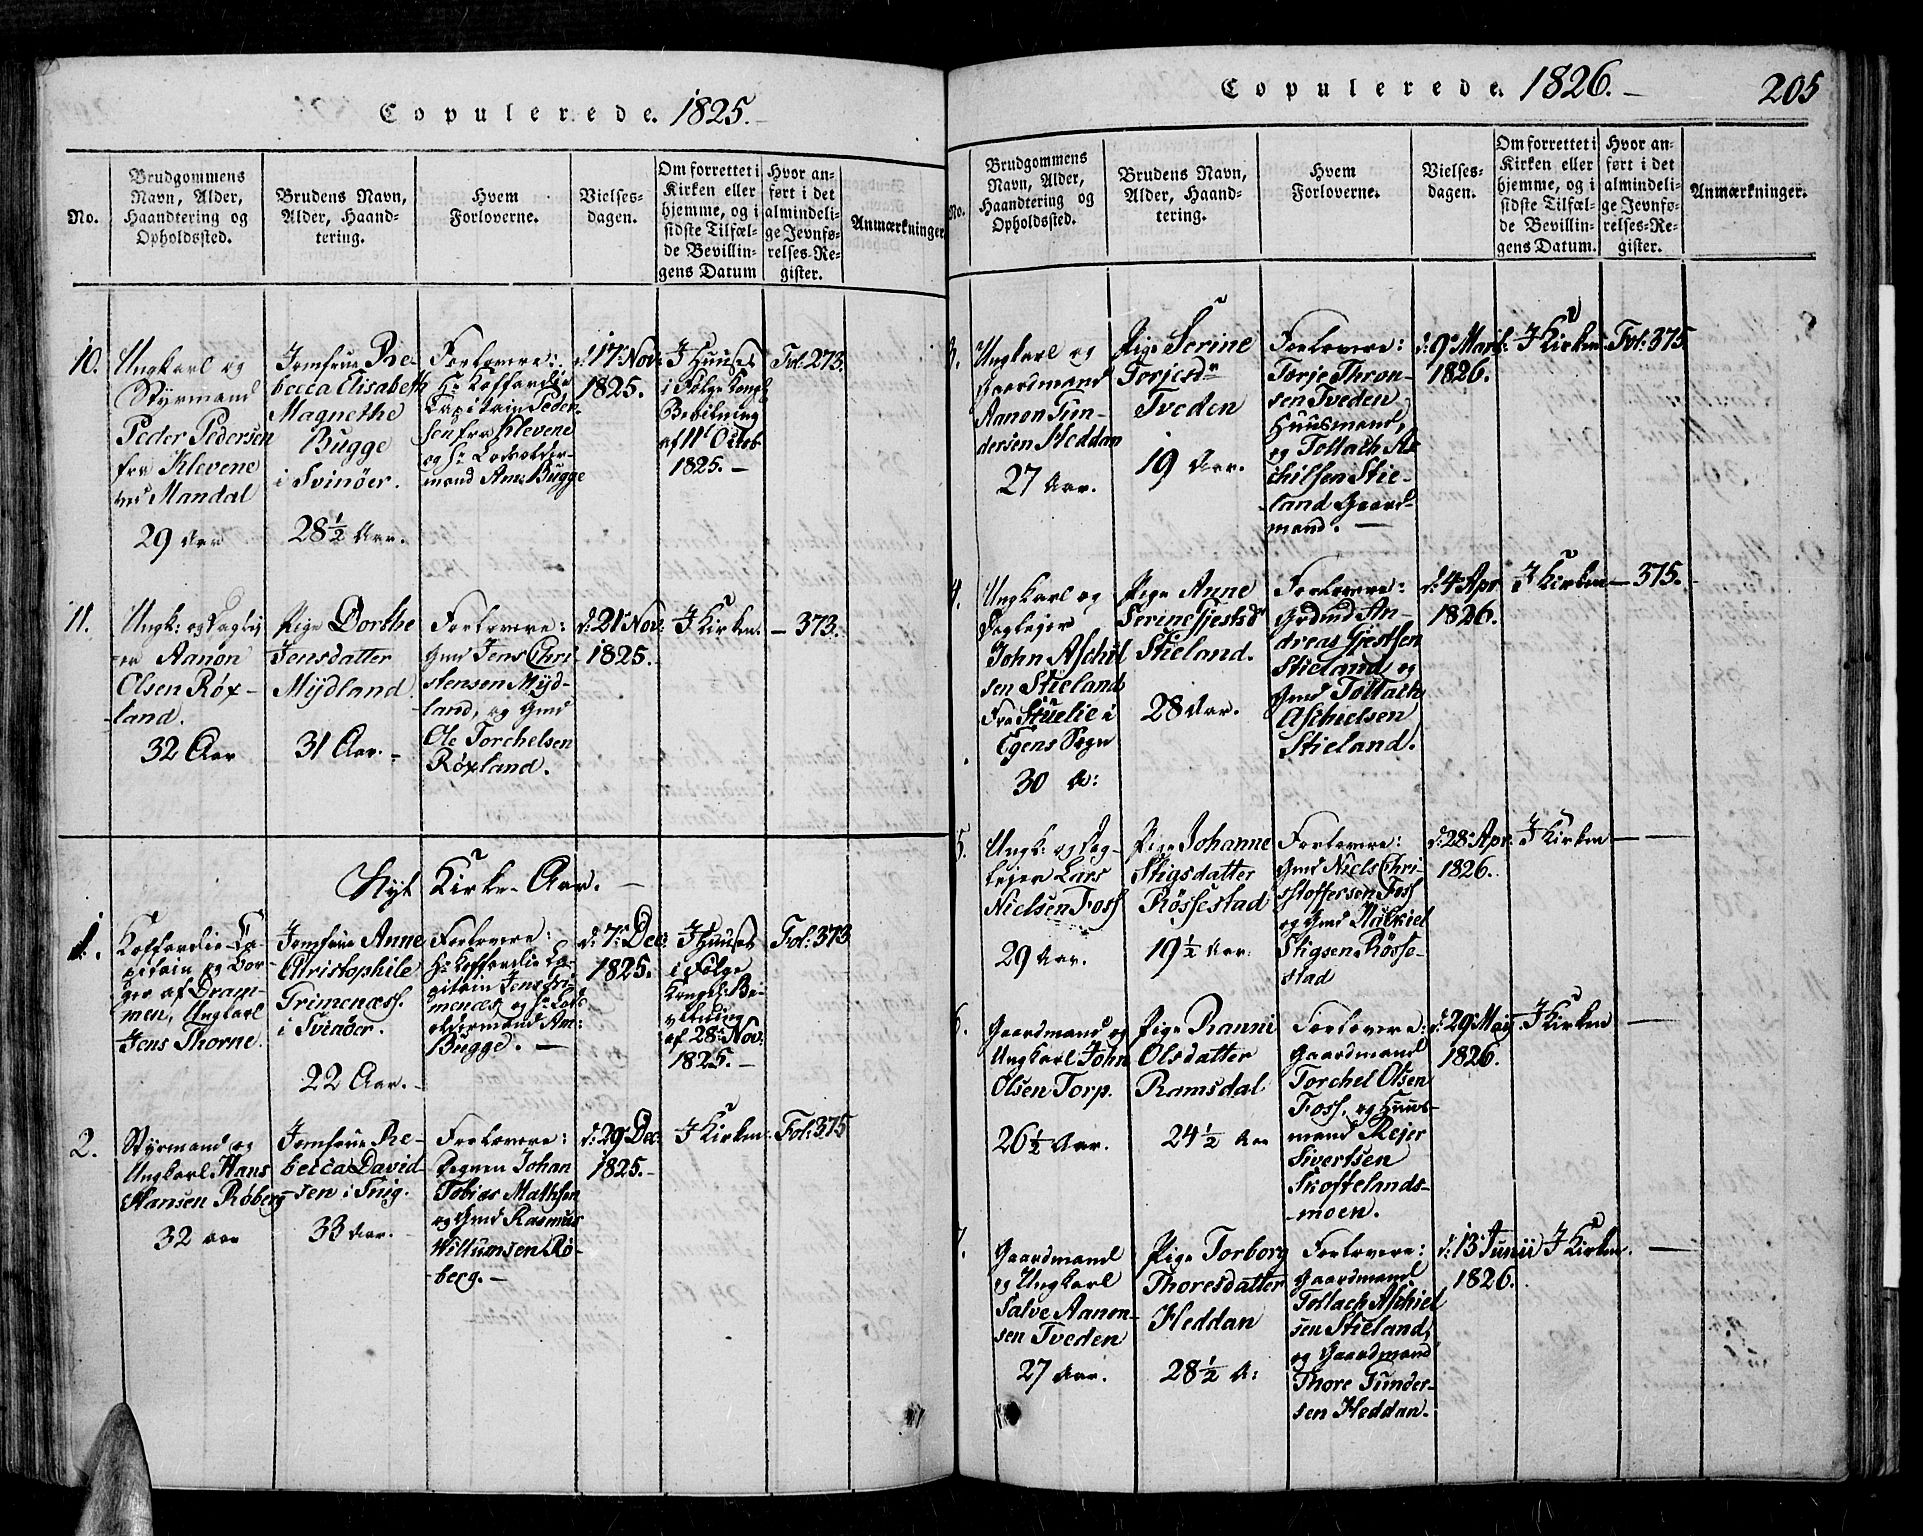 Copulerede. 1825.
No.
Brudgommens
Navn, Alder,
Haandtering og
Opholdssted.
Brudens Navn,
Alder, Haand-
tering.
Hvem
Forloverne.
Vielses-
dagen.
Om forrettet i
Kirken eller
hjemme, og i
sidste Tilfæl-
de Bevillin-
gens Datum
Hvor an-
ført i det
almindeli-
ge Jevnfø-
relses-Re-
gister.
Anmærkninger
10.
Ungkarl og
Styrmand
Peder Pedersen
fra Klevene
ved Mandal
29 Aar
Jomfrue Re-
becca Elisabeth
Magnethe
Bugge
i Svinöer.
28 1/2 Aar.
Forlovere:
Hr Koffardie
Capitain Peder-
sen fra Klevene
og Hr
mand Am: Bugge
d: 17 Nov:
1825.
I Huuset
i Følge Kongl
Bevilning
af 11t Octob
1825. –
Fol: 273.
11.
Ungk: og Daglej
er Aanon
Olsen Røx-
land.
32 Aar
Pige Dorthe
Jensdatter
Mijdland.
31 Aar. -
Forlovere:
Gmd Jens Chri-
stensen Mijd-
land, og Gmd
Ole Torchelsen
Røxland.
d: 21 Nov:
1825.
I Kirken.
– 373.
Nyt Kirke-Aar. –
1.
Koffardie-Ca-
pitain og Bor-
ger af Dram-
men, Ungkarl
Jens Thorne.
Jomfrue Anne
Christophile
Grimenæss.
i Svinöer.
22 Aar. -
Forlovere:
Hr Koffardie Ca-
pitain Jens Gri-
menæs, og Hr Lods
oldermand Am:
Bugge. –
d: 7 Dec:
1825.
I Huuset
i Følge
Kongel: Be-
vilning
af 28: Nov:
1825. –
Fol: 373
2.
Styrmand og
Ungkarl Hans
Hansen Röberg
32 aar
Jomfrue Re-
becca David-
sen i Snig.
33 Aar. -
Forlovere:
Degnen Johan
Tobias Mathsen
og Gmd Rasmus
Willumsen Rö-
berg. –
d: 29 Dec:
1825.
I Kirken.
Fol: 375
Copulerede. 1826. –
205
No.
Brudgommens
Navn, Alder,
Haandtering og
Opholdssted.
Brudens Navn,
Alder, Haand-
tering.
Hvem
Forloverne.
Vielses-
dagen.
Om forrettet i
Kirken eller
hjemme, og i
sidste Tilfæl-
de Bevillin-
gens Datum.
Hvor an-
ført i det
almindeli-
ge Jevnfø-
relses-Re-
gister.
Anmærkninger.
3.
Ungkarl og
Gaardmand
Aanon Gun-
dersen Heddan
27 Aar.
Pige Serine
Torjesdr
Tveden
19 Aar.
Forlovere:
Torje Thron-
sen Tveden
Huusmand,
og Tollach As-
chilsen Stie-
land Gaard-
mand. –
d: 9 Marts:
1826.
I Kirken
Fol: 375.
4.
Ungkarl og
Daglejer
John Aschil
sen Stieland
Fra Stuelie i
Egens Sogn
30 A:
Pige Anne
Serine Gjestsdr
Stieland.
28 Aar.
Forlovere:
Grdmd An-
dreas Gjestsen
Stieland, og
Gmd Tollach
Aschielsen
Stieland.
d: 4 Apr
1826.
I Kirken
– 375.
5.
Ungk: og Dag-
lejer Lars
Nielsen Foss
29 Aar.
Pige Johanne
Stigsdatter
Røssestad
19 1/2 Aar.
Forlovere:
Gmd Niels Chri-
stoffersen Foss
og Gmd
Stigsen Røsse-
stad
d: 28: Apr
1826.
I Kirken
–
6.
Gaardmand og
Ungkarl John
Olsen Torp.
26 1/2 Aar.
Pige Ranni
Olsdatter
Ramsdal
24 1/2 Aar
Forlovere:
Gaardmand
Torchel Olsen
Foss. og Huus-
mand Rejer
Sivertsen
Skoftelands-
-moen.
d: 29 Maij
1826.
I Kirken
–
7.
Gaardmand
og Ungkarl
Salve Aanon-
sen Tveden
27 Aar.
Pige Torborg
Thoresdatter
Heddan
28 1/2 A:
Forlovere:
Gaardmand
Tollach Aschiel
sen Stieland,
og Gaardmand
Thore Gunder-
sen Heddan.
d: 13 Junii
1826.
I Kirken.
–